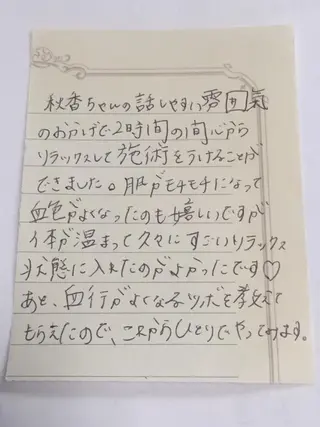 秋香ちゃんの話しやすい雰囲氣
のおかげで2時間の間心から
リラックスして施術をうけることが
できました。肌がモチモチになって
血色がよくなったのも嬉しいですが
体が温まって久々にすごいリラックス
状態に入れたのがよかったです♡
あと、血行がよくなるツボを教えて
もらえたので、これからひとりでやってみます。